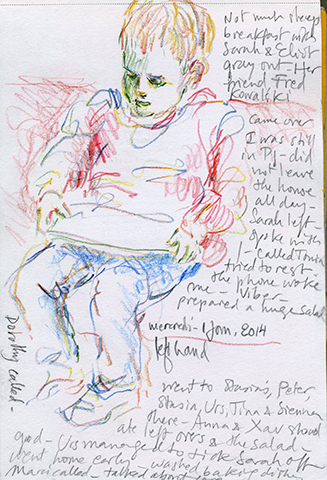 Not much sleep
breakfast with
Sarah & Eliot
gray out - Her
friend Fred
Kowalski
came over
I was still
in PJ - did
not leave
the house
all day -
Sarah left
spoke with
- called Tonia
tried to rest
the phone woke
me - Viber -
prepared a huge salad
mercredi - 1 Jan. 2014
left hand
Dorothy called -
went to Stasia's, Peter,
Stasia, Urs, Tina & Sienna
there - Anna & Xav showed
ate left overs & the salad -
good - Urs managed to tick Sarah off
went home early - washed baking dish
called - talked about